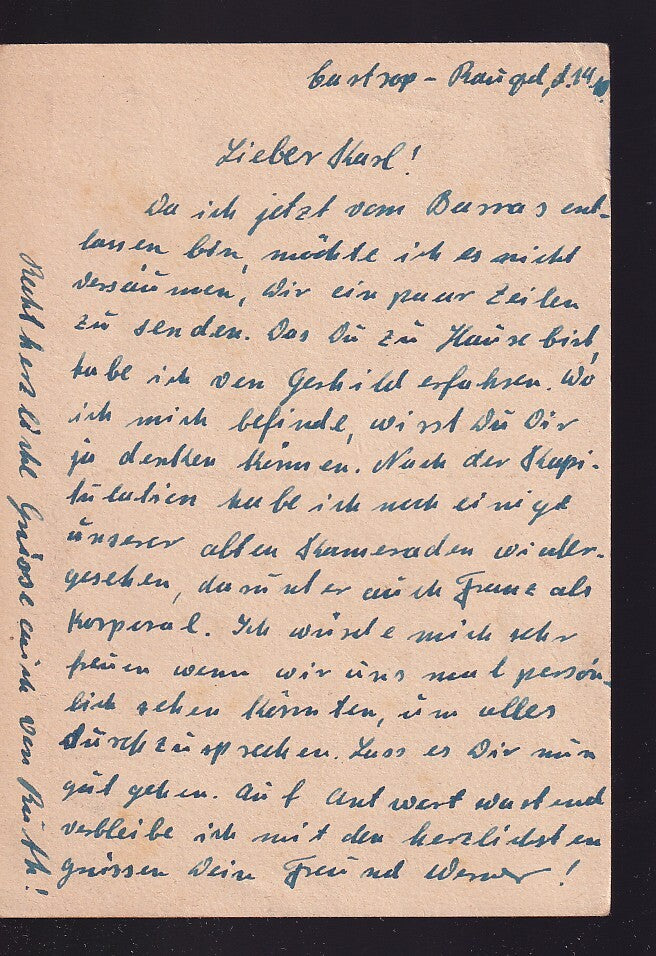 Castrop-Rauxel, d. 14.
Lieber Karl!
Da ich jetzt vom Barras ent-
lassen bin, möchte ich es nicht
versäumen, Dir ein paar Zeilen
zu senden. Das Du zu Hause bist,
habe ich von Gerhild erfahren. Wo
ich mich befinde, wirst Du Dir
ja denken können. Nach der Kapi-
tulation habe ich noch einige
unserer alten Kameraden wieder-
gesehen, darunter auch Franz als
Korporal. Ich würde mich sehr
freuen wenn wir uns mal persön-
lich sehen könnten, um alles
durchzusprechen. Lass es Dir nun
gut gehen. Auf Antwort wartend
verbleibe ich mit den herzlichsten
grüssen Dein Freund Werner!
Recht herzliche Grüsse auch von Ruth!